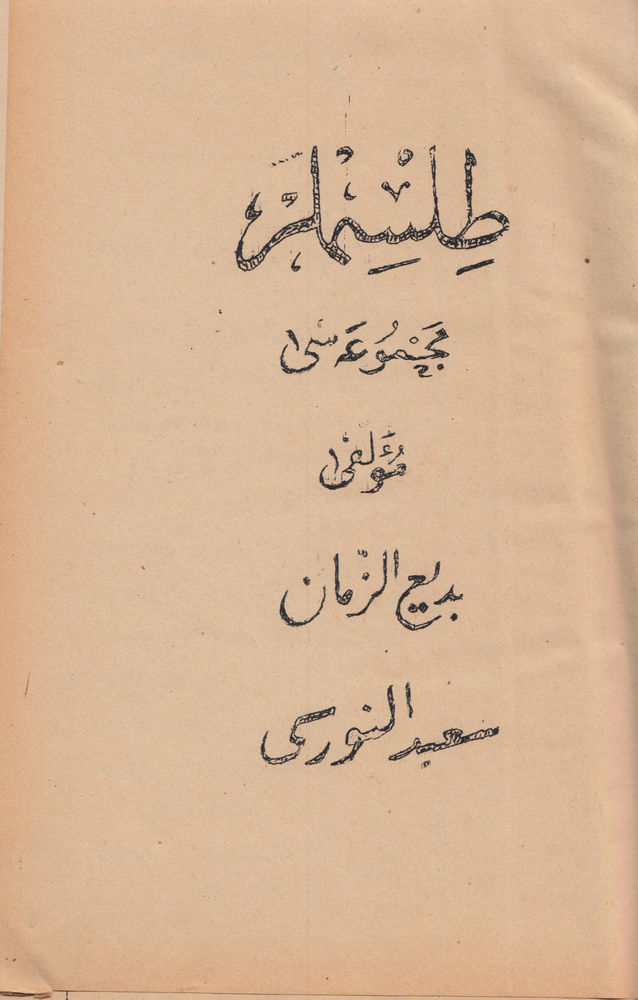 طِلْسِمْلَرْ
مَجْمُوعَه سی
مُؤَلفی
بديع الزّمان
سعيد النورسی